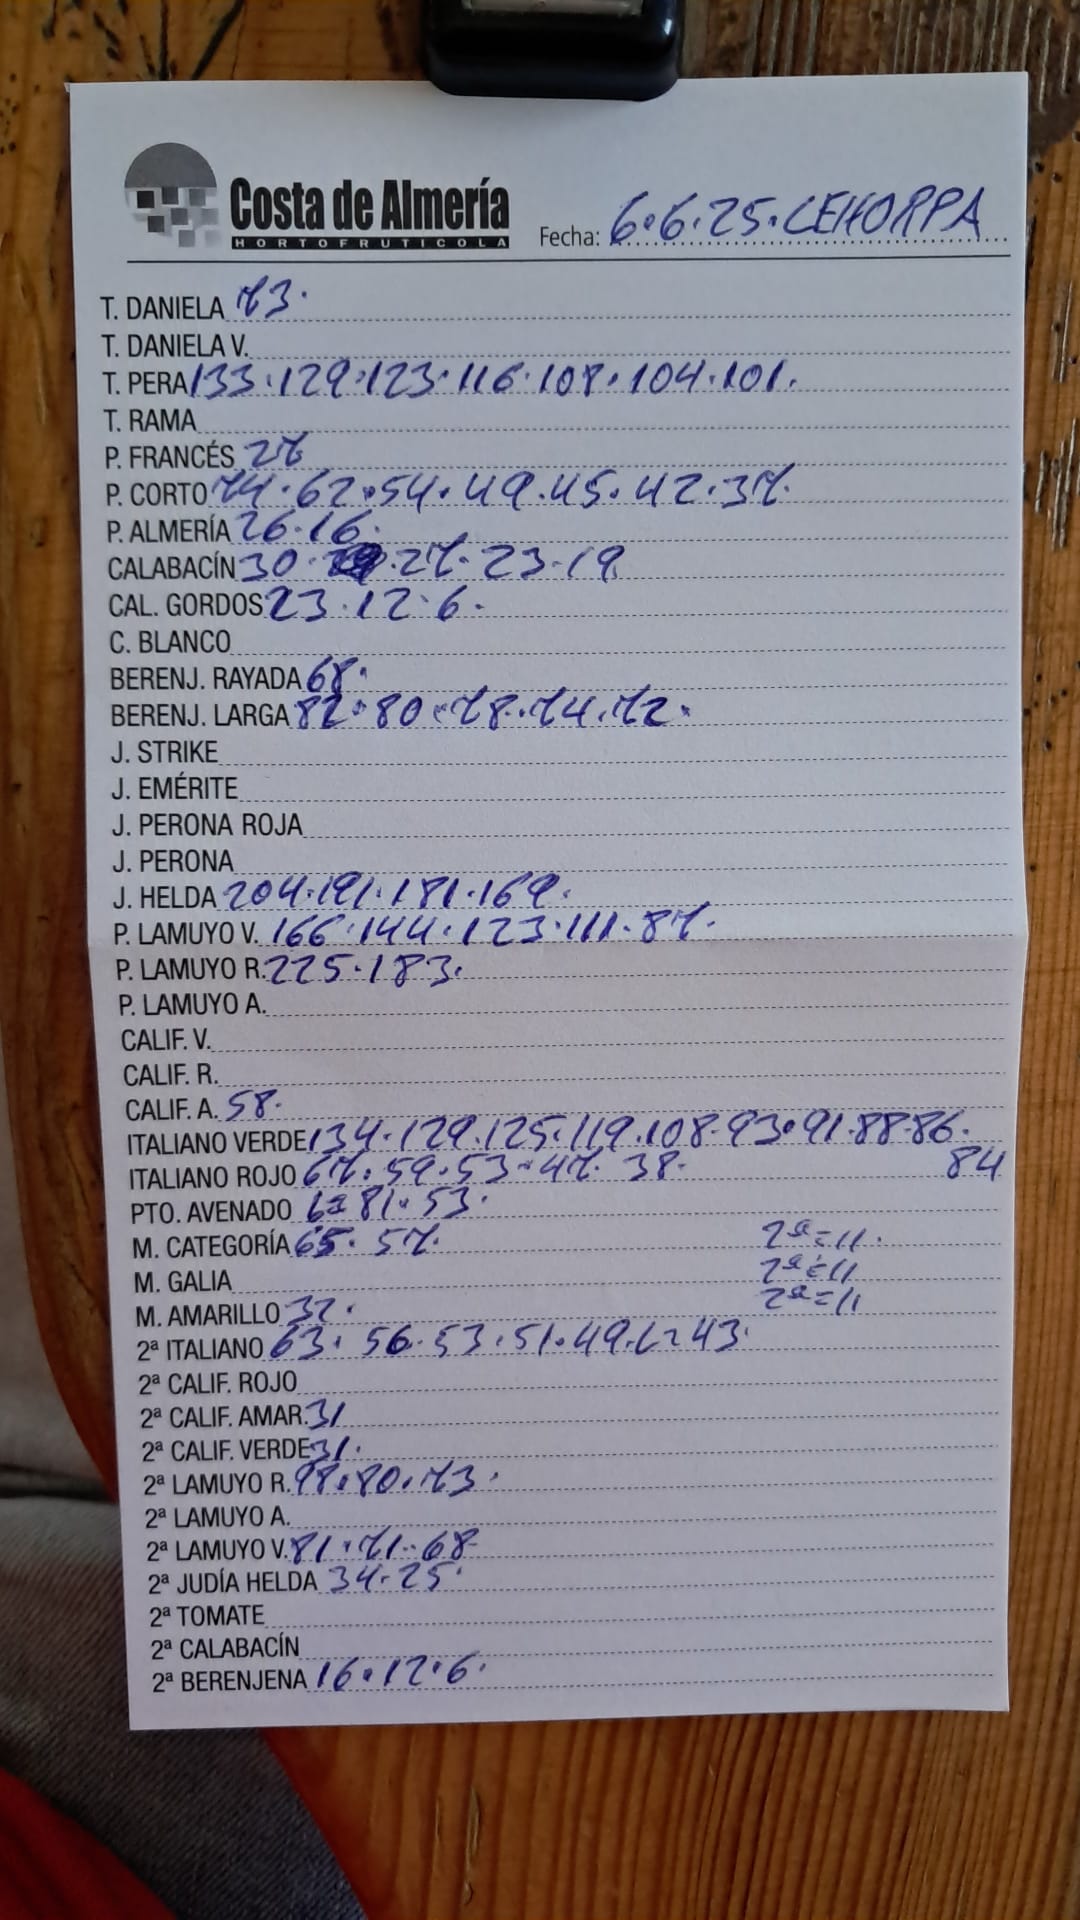 Costa de Almería
HORTOFRUTICOLA
Fecha: 6.6.25.CEHORPA
T. DANIELA 73.
T. DANIELA V.
T. PERA 133.129.123.116.108.104.101.
T. RAMA
P. FRANCÉS 27
P. CORTO 74.62.54.49.45.42.37.
P. ALMERÍA 26.16.
CALABACÍN 30. .27.23.19
CAL. GORDOS 23.12.6.
C. BLANCO
BERENJ. RAYADA 68.
BERENJ. LARGA 82.80.78.74.72.
J. STRIKE
J. EMÉRITE
J. PERONA ROJA
J. PERONA
J. HELDA 204.191.181.169.
P. LAMUYO V. 166.144.123.111.87.
P. LAMUYO R. 225.183.
P. LAMUYO A.
CALIF. V.
CALIF. R.
CALIF. A. 58.
ITALIANO VERDE 134.129.125.119.108.93.91.88.86.
ITALIANO ROJO 67.59.53.47.38. 84
PTO. AVENADO 81.53.
M. CATEGORÍA 65.57. 2ª=11.
M. GALIA 2ª=11
M. AMARILLO 32. 2ª=11
2ª ITALIANO 63.56.53.51.49. 43.
2ª CALIF. ROJO
2ª CALIF. AMAR. 31
2ª CALIF. VERDE 31.
2ª LAMUYO R. 98.80.73.
2ª LAMUYO A.
2ª LAMUYO V. 81.71.68
2ª JUDÍA HELDA 34.25.
2ª TOMATE
2ª CALABACÍN
2ª BERENJENA 16.12.6.